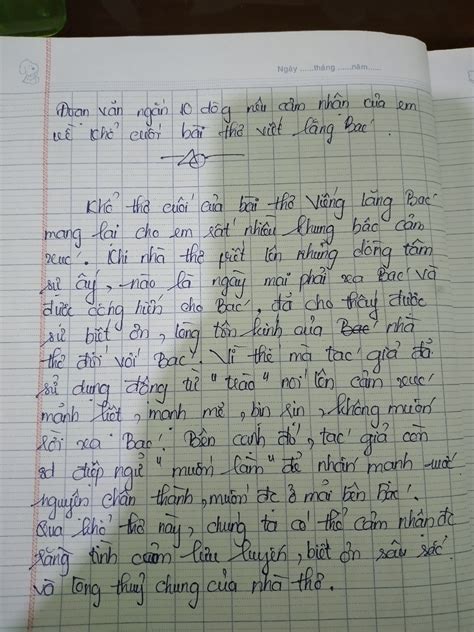 Ngày ......tháng ......năm......
Đoạn văn ngắn 10 dòg nêu cảm nhận của em
về khổ cuối bài thơ viết lăng Bác
Khổ thơ cuối của bài thơ Viếng lăng Bác
mang lại cho em rất nhiều khung bậc cảm
xúc. Khi nhà thơ viết lên những dòng tâm
sử ấy, nào là ngày mai phải xa Bác và
được cống hiến cho Bác, đã cho thấy được
sự biết ơn, lòng tôn kính của Bác nhà
thơ đối với Bác. Vì thế mà tác giả đã
sử dụng động từ "trào" nói lên cảm xúc
mãnh liệt, mạnh mẽ, bịn rịn, không muốn
rời xa Bác. Bên cạnh đó, tác giả còn
sd điệp ngữ "muốn làm" để nhấn mạnh ước
nguyện chân thành, muốn đc ở mãi bên Bác.
Qua khổ thơ này, chúng ta có thể cảm nhân đc
rằng tình cảm lưu luyến, biết ơn sâu sắc
và lòng thuỷ chung của nhà thơ.